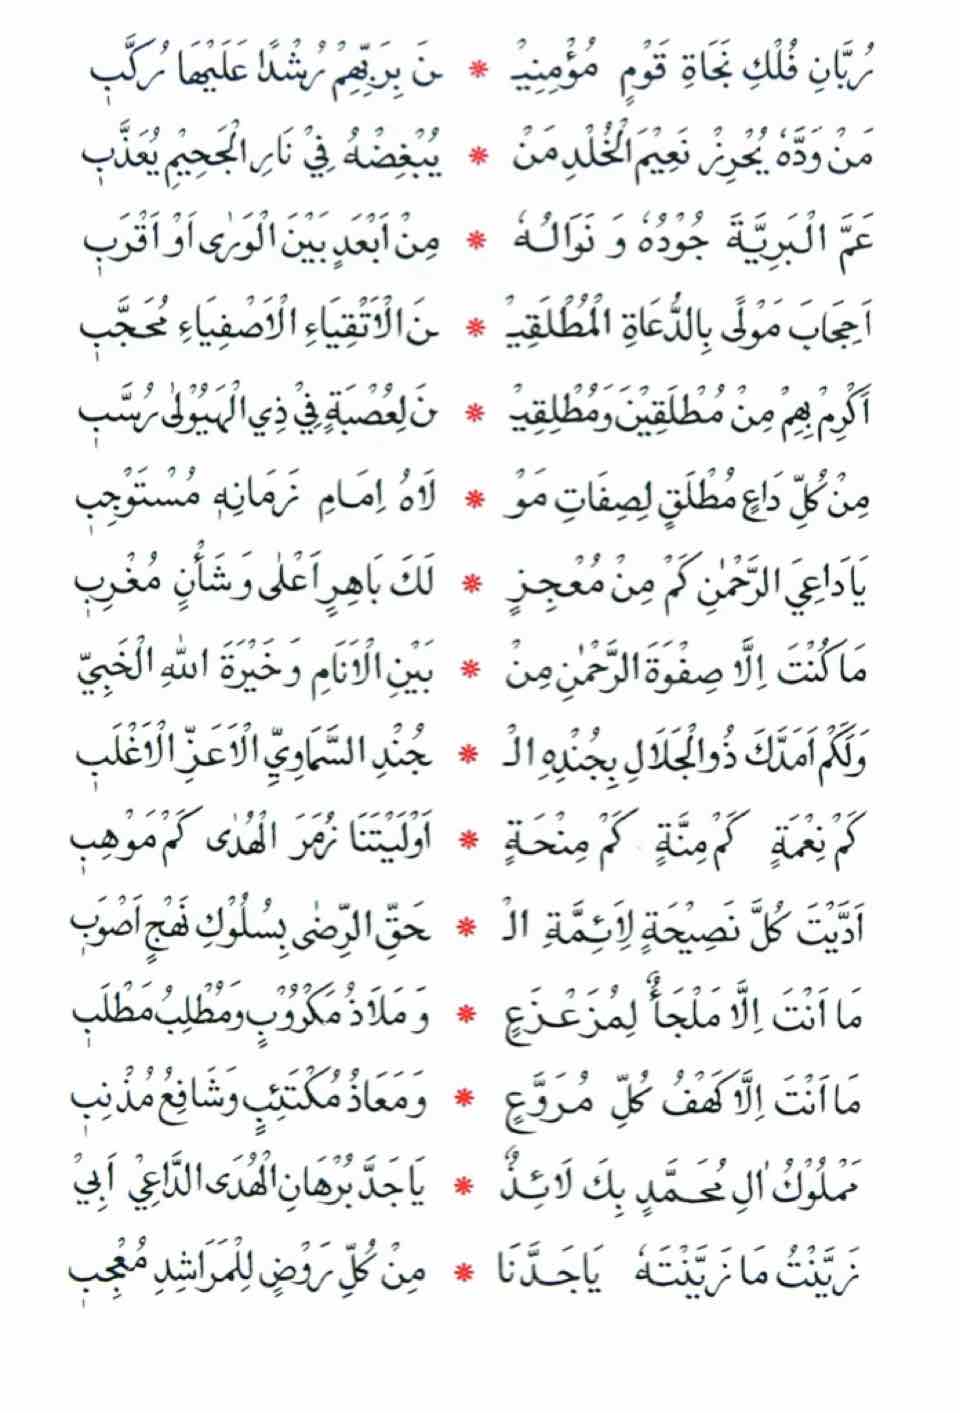 رُبَّانِ فُلْكِ نَجَاةِ قَوْمٍ مُؤْمِنِيْـ * ـنَ بِرَبِّهِمْ رُشْدًا عَلَيْهَا رُكَّبٖ
مَنْ وَدَّهٗ يُحْرِزْ نَعِيْمَ الْخُلْدِ مَنْ * يُبْغِضْهُ فِيْ نَارِ الْجَحِيْمِ يُعَذَّبٖ
عَمَّ الْبَرِيَّةَ جُوْدُهٗ وَ نَوَالُـهٗ * مِنْ اَبْعَدٍ بَيْنَ الْوَرٰى اَوْ اَقْرَبٖ
اَحِجَابَ مَوْلًى بِالدُّعَاةِ الْمُطْلَقِيْـ * ـنَ الْاَتْقِيَاءِ الْاَصْفِيَاءِ مُحَجَّبٖ
اَكْرِمْ بِهِمْ مِنْ مُطْلَقِيْنَ وَمُطْلِقِيْـ * ـنَ لِعُصْبَةٍ فِيْ ذِي الْهَيُوْلٰى رُسَّبٖ
مِنْ كُلِّ دَاعٍ مُطْلَقٍ لِصِفَاتِ مَوْ * لَاهُ اِمَامِ زَمَانِهٖ مُسْتَوْجِبٖ
يَا دَاعِيَ الرَّحْمٰنِ كَمْ مِنْ مُعْجِزٍ * لَكَ بَاهِرٍ اَعْلٰى وَشَأْنٍ مُغْرِبٖ
مَا كُنْتَ اِلَّا صِفْوَةَ الرَّحْمٰنِ مِنْ * بَيْنِ الْاَنَامِ وَخَيْرَةَ اللهِ الْخَبِيّ
وَلَكَمْ اَمَدَّكَ ذُوالْجَلَالِ بِجُنْدِهِ الْـ * ـجُنْدِ السَّمَاوِيِّ الْاَعَزِّ الْاَغْلَبٖ
كَمْ نِعْمَةٍ كَمْ مِنَّةٍ كَمْ مِنْحَةٍ * اَوْلَيْتَنَا زُمَرَ الْهُدٰى كَمْ مَوْهِبٖ
اَدَّيْتَ كُلَّ نَصِيْحَةٍ لِاَئِمَّةِ الْـ * ـحَقِّ الرِّضٰى بِسُلُوْكِ نَهْجٍ اَصْوَبٖ
مَا اَنْتَ اِلَّا مَلْجَأٌ لِمُزَعْزَعٍ * وَ مَلَاذُ مَكْرُوْبٍ وَمُطْلِبُ مَطْلَبٖ
مَا اَنْتَ اِلَّا كَهْفُ كُلِّ مُرَوَّعٍ * وَمَعَاذُ مُكْتَئِبٍ وَشَافِعُ مُذْنِبٖ
مَمْلُوْكُ اٰلِ مُحَمَّدٍ بِكَ لَائِذٌ * يَا جَدَّ بُرْهَانِ الْهُدَى الدَّاعِيْ اَبِيْ
زَيَّنْتُ مَا زَيَّنْتَهٗ يَا جَدَّنَا * مِنْ كُلِّ رَوْضٍ لِلْمَرَاشِدِ مُعْجِبٖ